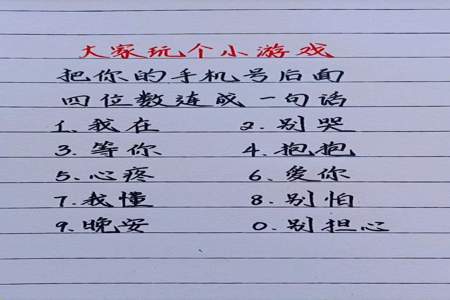 大家玩个小游戏
把你的手机号后面
四位数连成一句话
1.我在 2.别哭
3.等你 4.抱抱
5.心疼 6.爱你
7.我懂 8.别怕
9.晚安 0.别担心